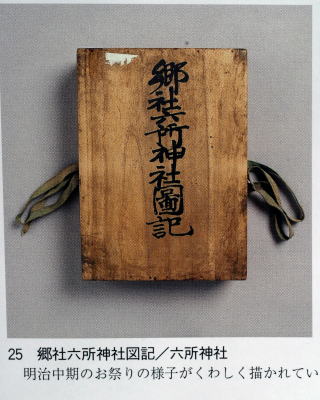 郷社六所神社圖記
25 郷社六所神社図記／六所神社
明治中期のお祭りの様子がくわしく描かれてい